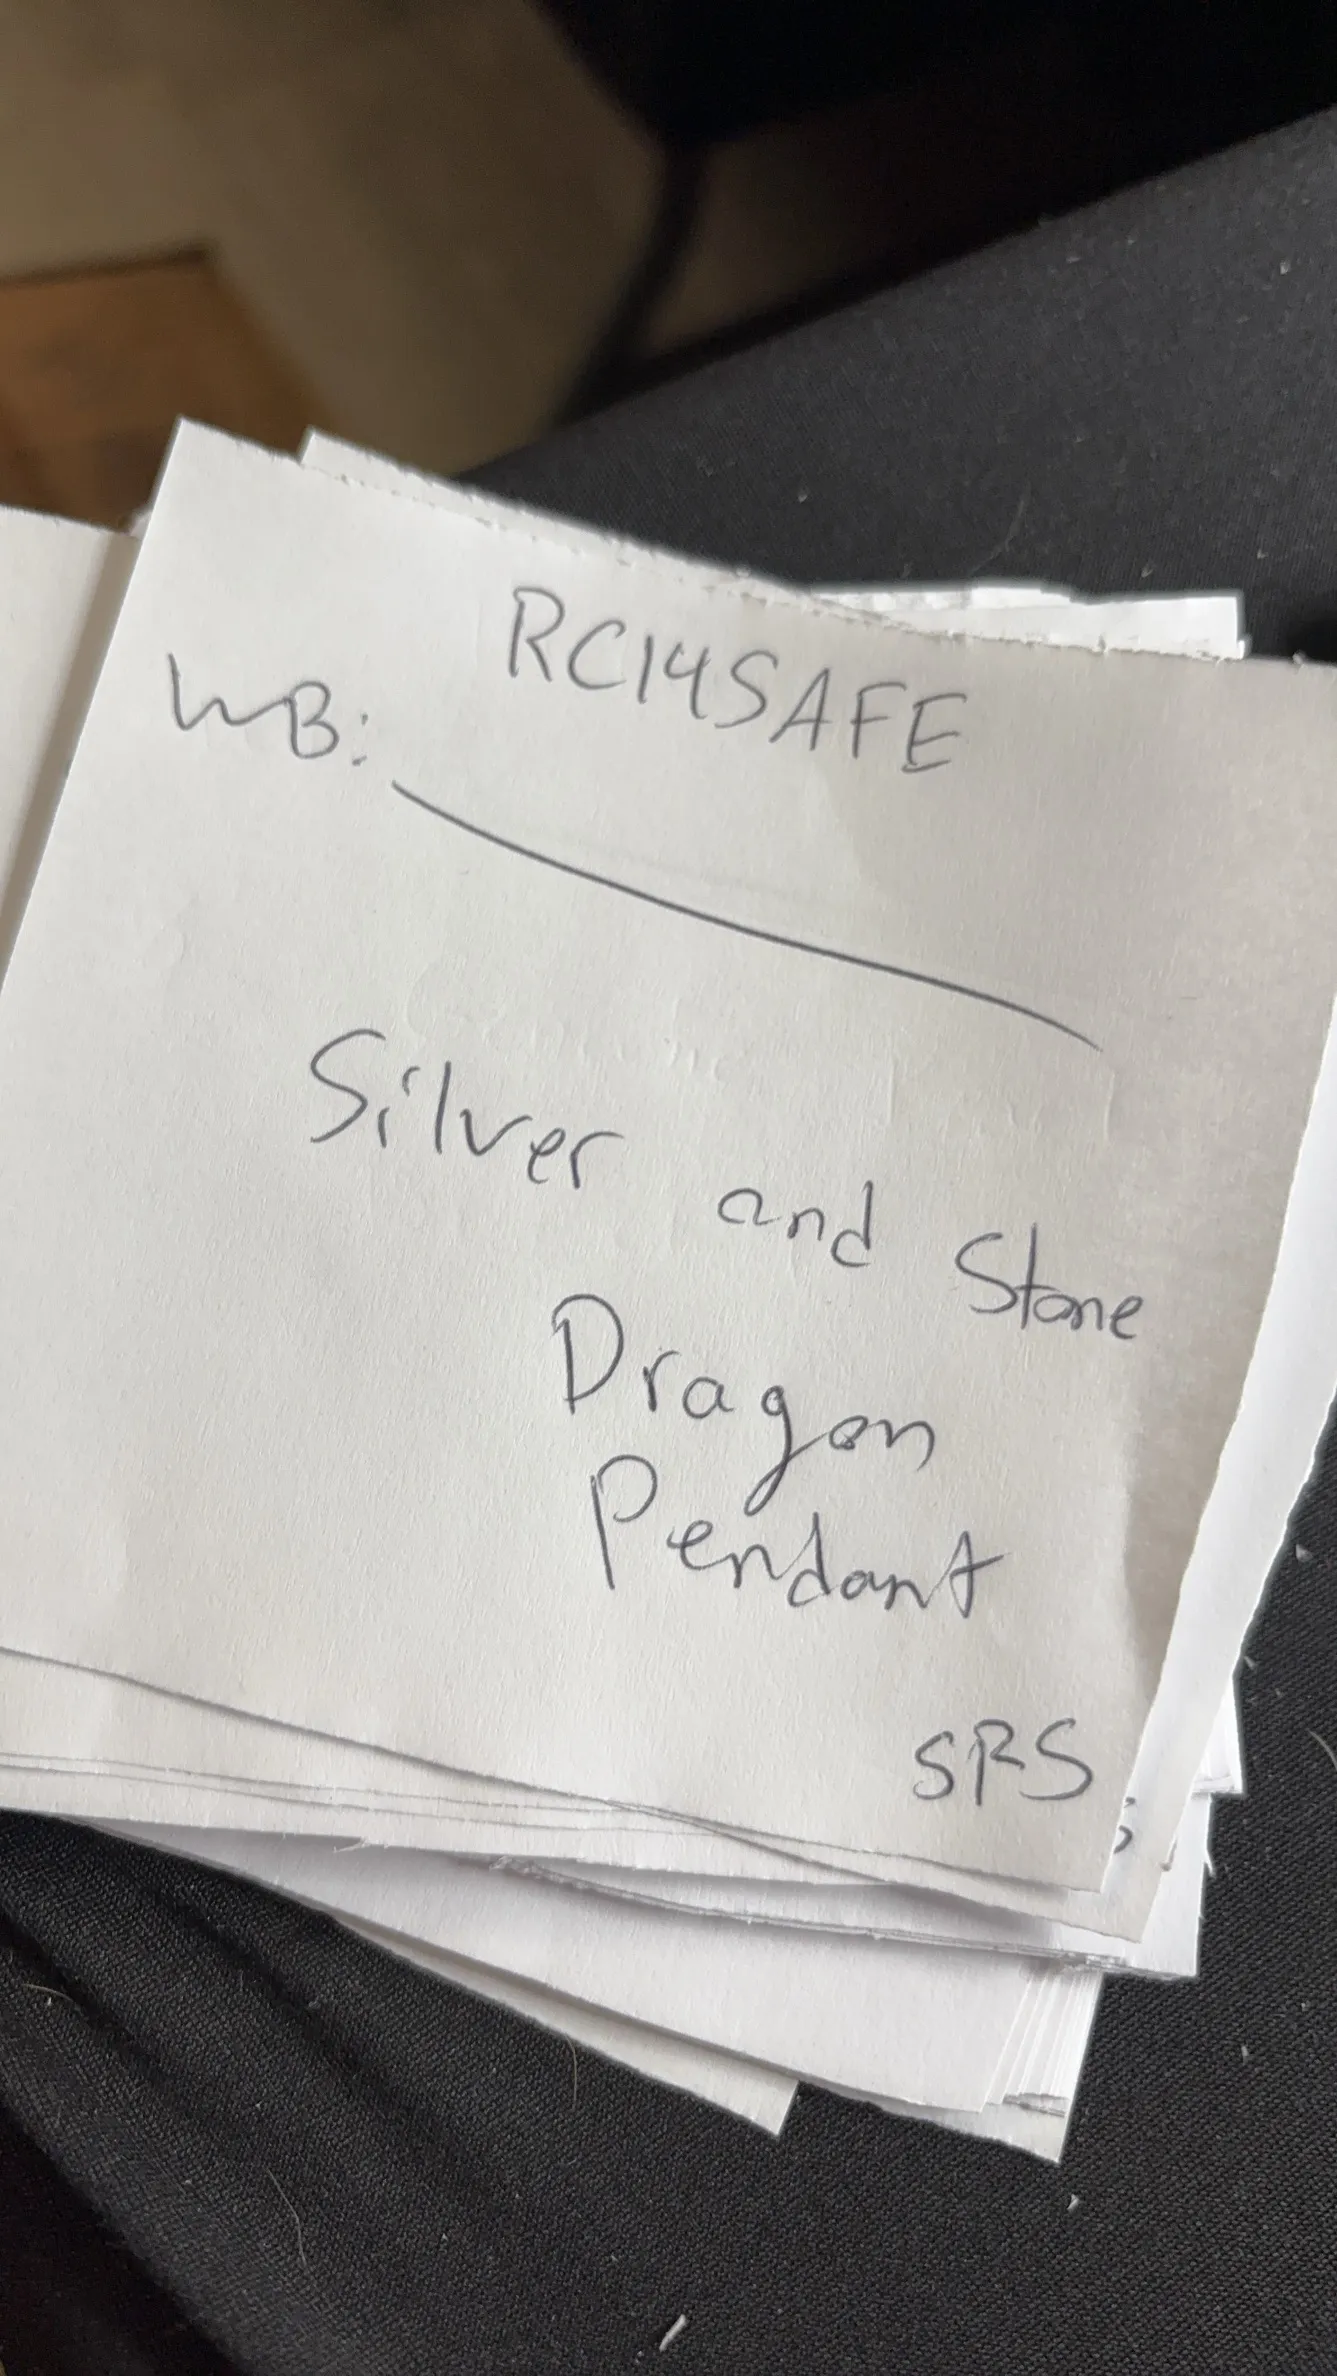 RC14SAFE
WB:
Silver and Stone
Dragon
Pendant
SRS